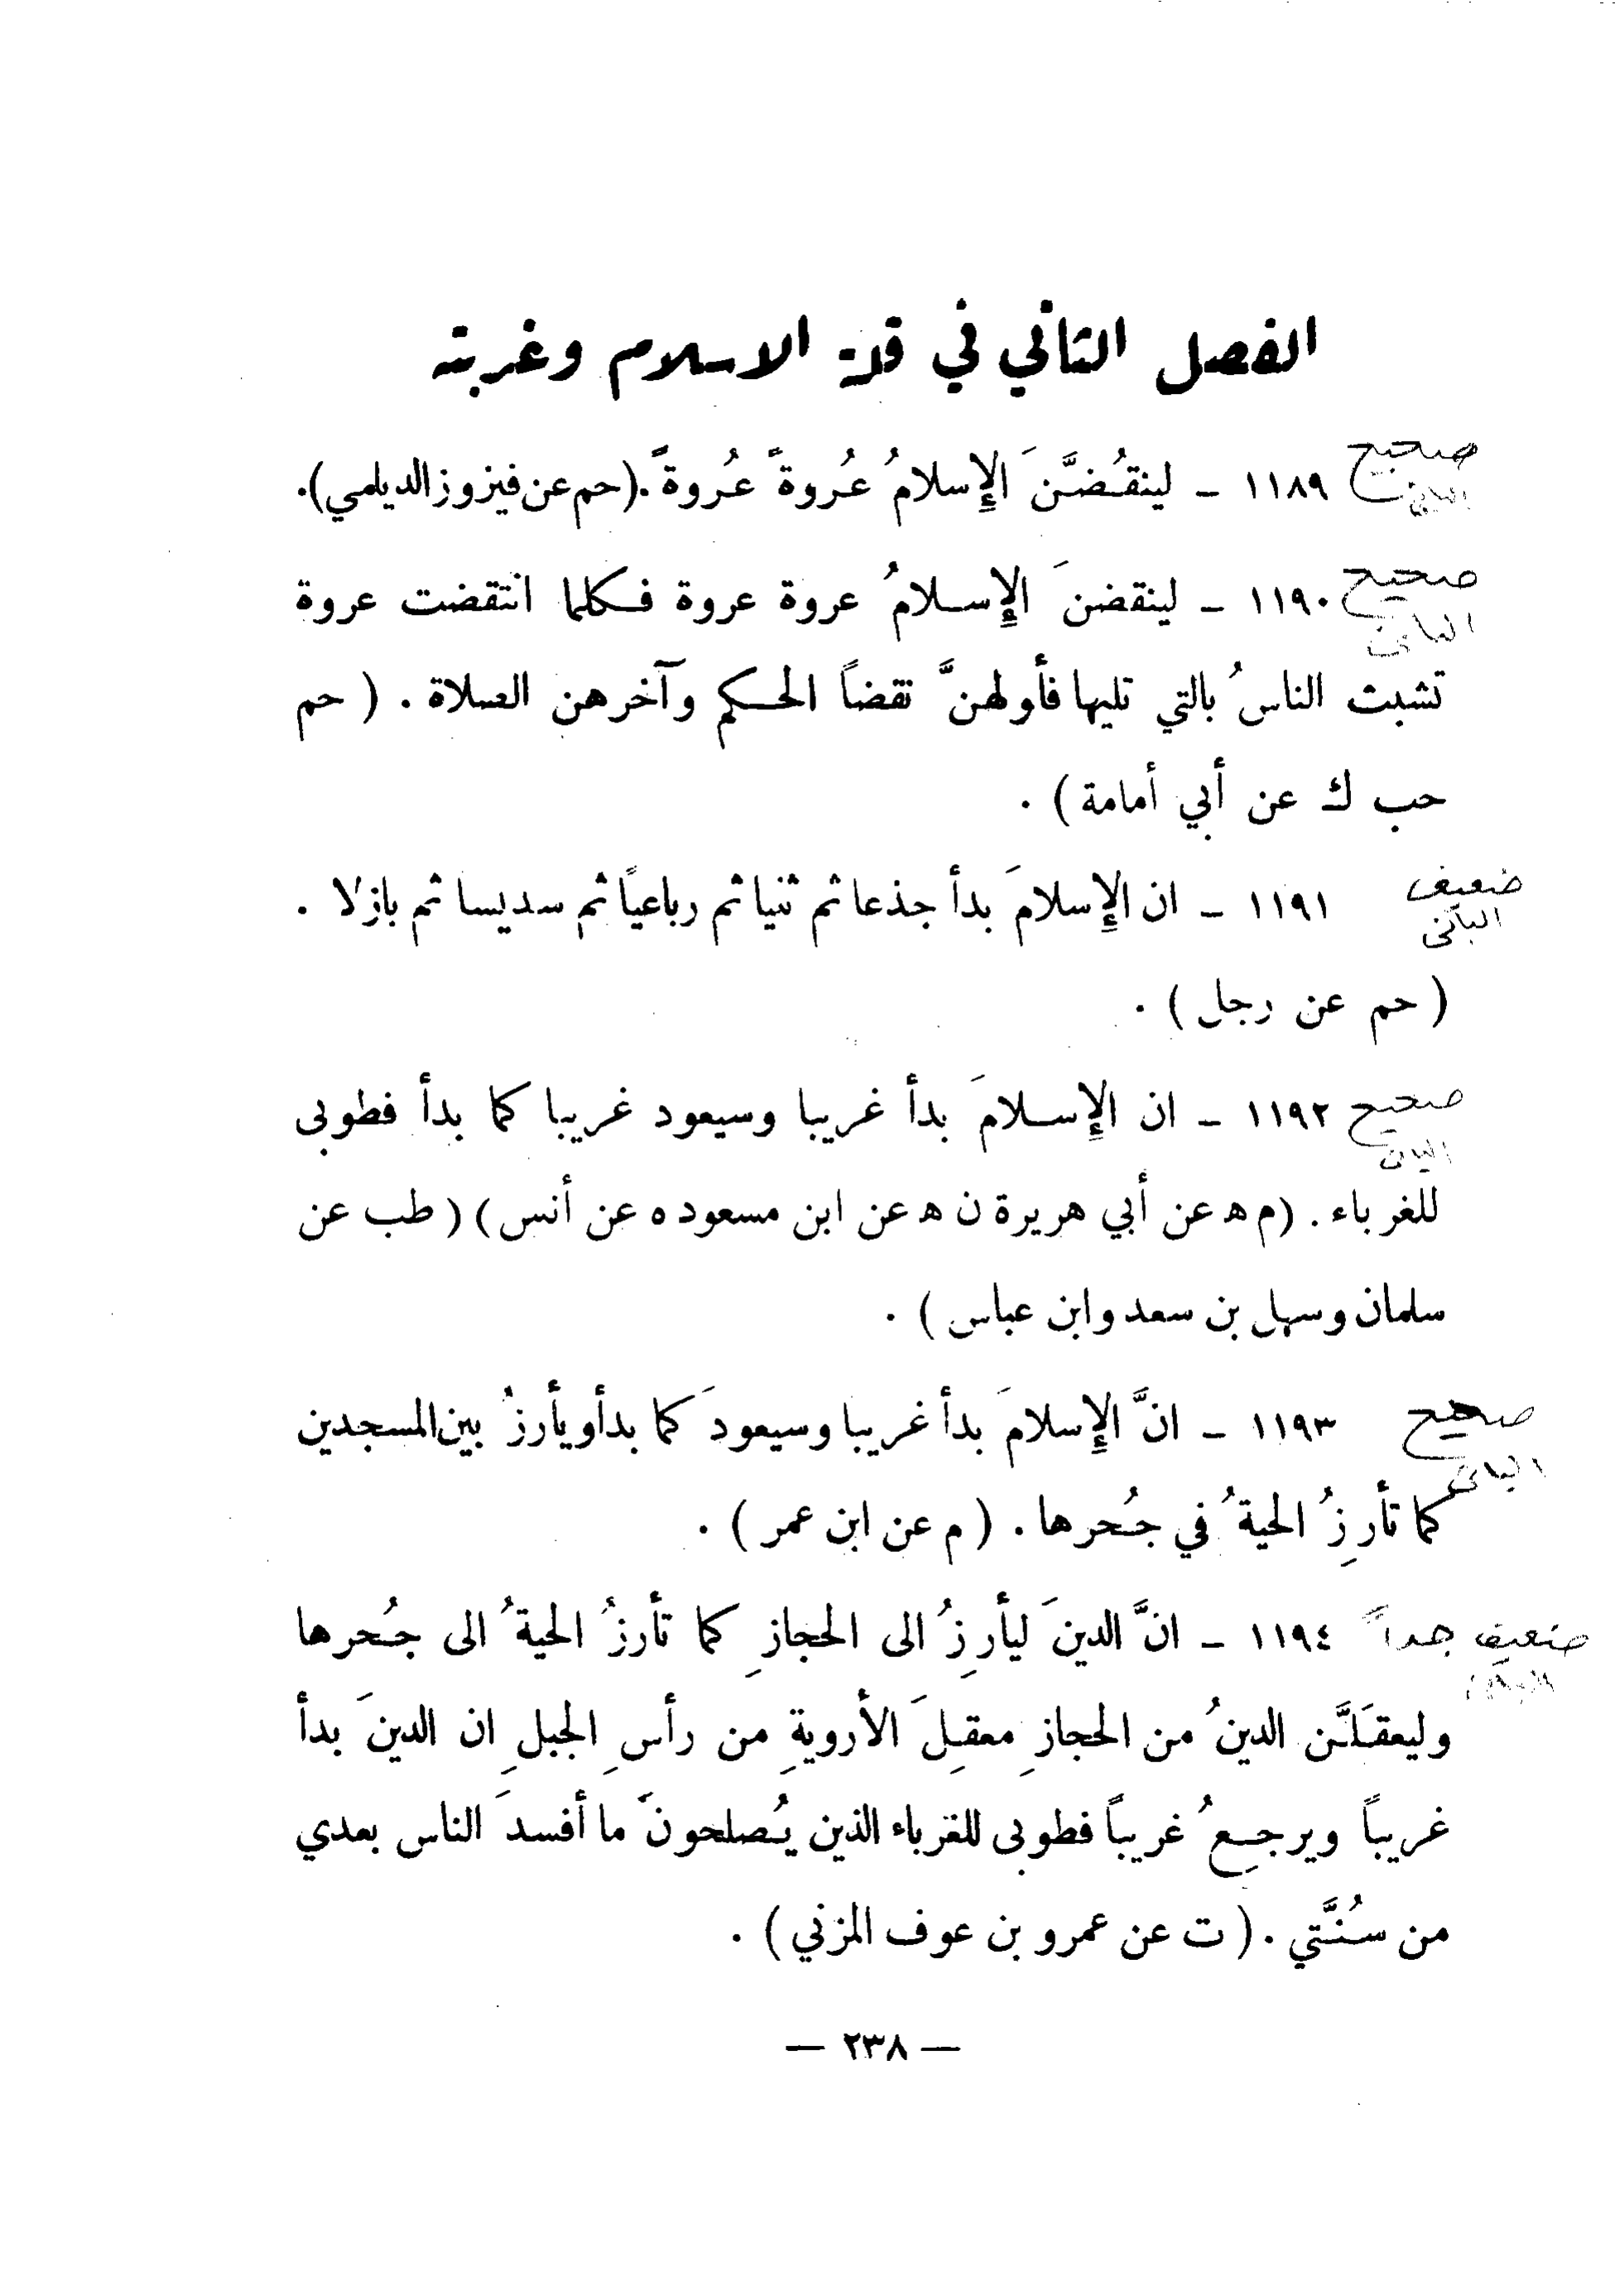 الفصل الثاني في قلة الاسلام وغربته
صحيح
الباني
١١٨٩ – لينقُضَنَّ الإِسلامُ عُروةً عُروةً. (حم عن فيروز الديلمي).
صحيح
الباني
١١٩٠ – لينقضنَ الإِسلامُ عروة عروة فكلما انتقضت عروة
تشبث الناسُ بالتي تليها فأولهنَّ نقضاً الحكم وآخرهن الصلاة . ( حم
حب ك عن أبي أمامة ) .
ضعيف
البانى
١١٩١ – ان الإِسلامَ بدأ جذعا ثم ثنيا ثم رباعيًا ثم سديسا ثم بازلا .
( حم عن رجل ) .
صحيح
الباني
١١٩٢ – ان الإِسلامَ بدأ غريبا وسيعود غريبا كما بدأ فطوبى
للغرباء . (م ه عن أبي هريرة ن ه عن ابن مسعود ه عن أنس) ( طب عن
سلمان وسهل بن سعد وابن عباس ) .
صحيح
البانى
١١٩٣ – انَّ الإِسلامَ بدأ غريبا وسيعودَ كما بدأ ويأرزُ بين المسجدين
كما تأرِزُ الحيةُ في جُحرها . ( م عن ابن عمر ) .
ضعيف جداً
١١٩٤ – انَّ الدينَ ليأرِزُ الى الحجازِ كما تأرزُ الحيةُ الى جُحرها
وليعقلَنَّ الدينُ من الحجازِ معقِلَ الأرويةِ من رأسِ الجبلِ ان الدينَ بدأ
غريباً ويرجعُ غريباً فطوبى للغرباء الذين يُصلحونَ ما أفسدَ الناس بعدي
من سُنَّتي . ( ت عن عمرو بن عوف المزني ) .
— ٢٣٨ —